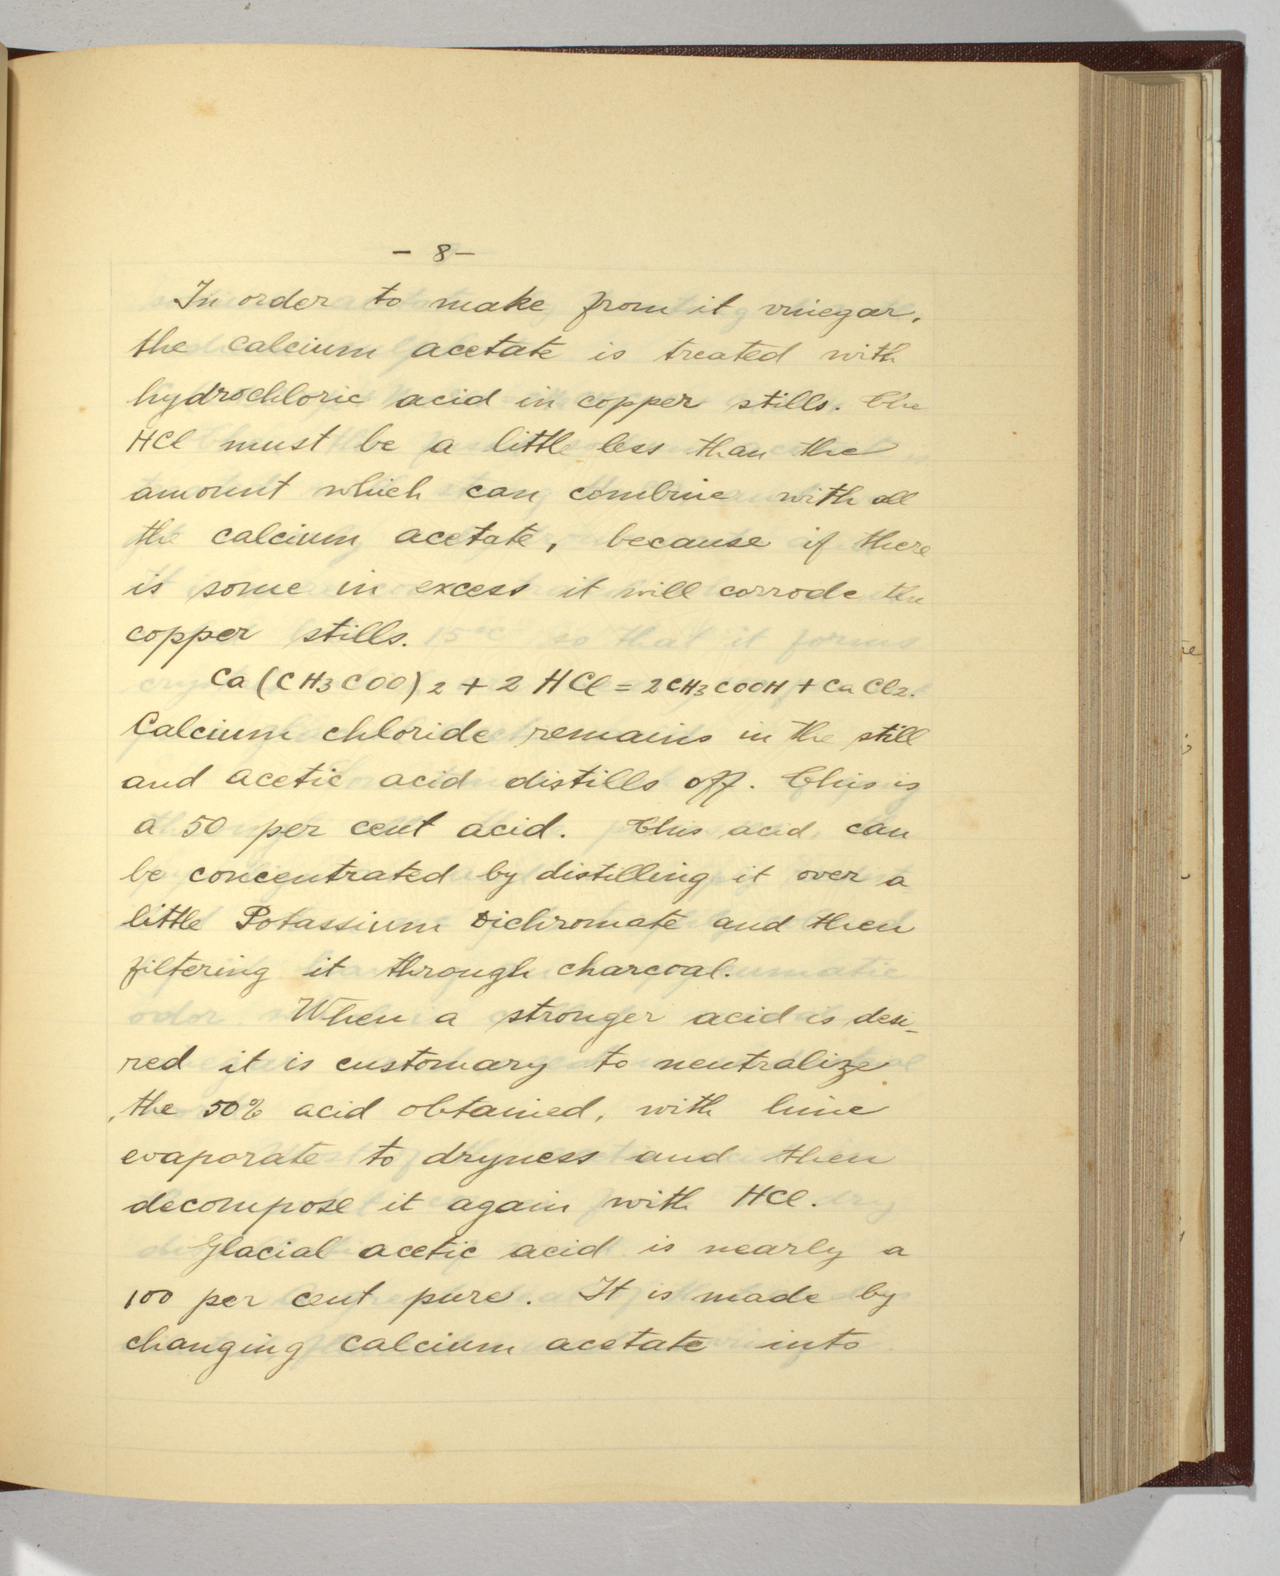 - 8 -
In order to make from it vinegar,
the calcium acetate is treated with
hydrochloric acid in copper stills. The
HCl must be a little less than the
amount which can combine with all
the calcium acetate, because if there
is some in excess it will corrode the
copper stills.
Ca(CH3COO)2 + 2 HCl = 2CH3COOH + CaCl2.
Calcium chloride remains in the still
and acetic acid distills off. This is
a 50 per cent acid. This acid can
be concentrated by distilling it over a
little Potassium Dichromate and then
filtering it through charcoal.
When a stronger acid is desi-
red it is customary to neutralize
the 50% acid obtained, with lime
evaporate to dryness and then
decompose it again with HCl.
Glacial acetic acid is nearly a
100 per cent pure. It is made by
changing calcium acetate into